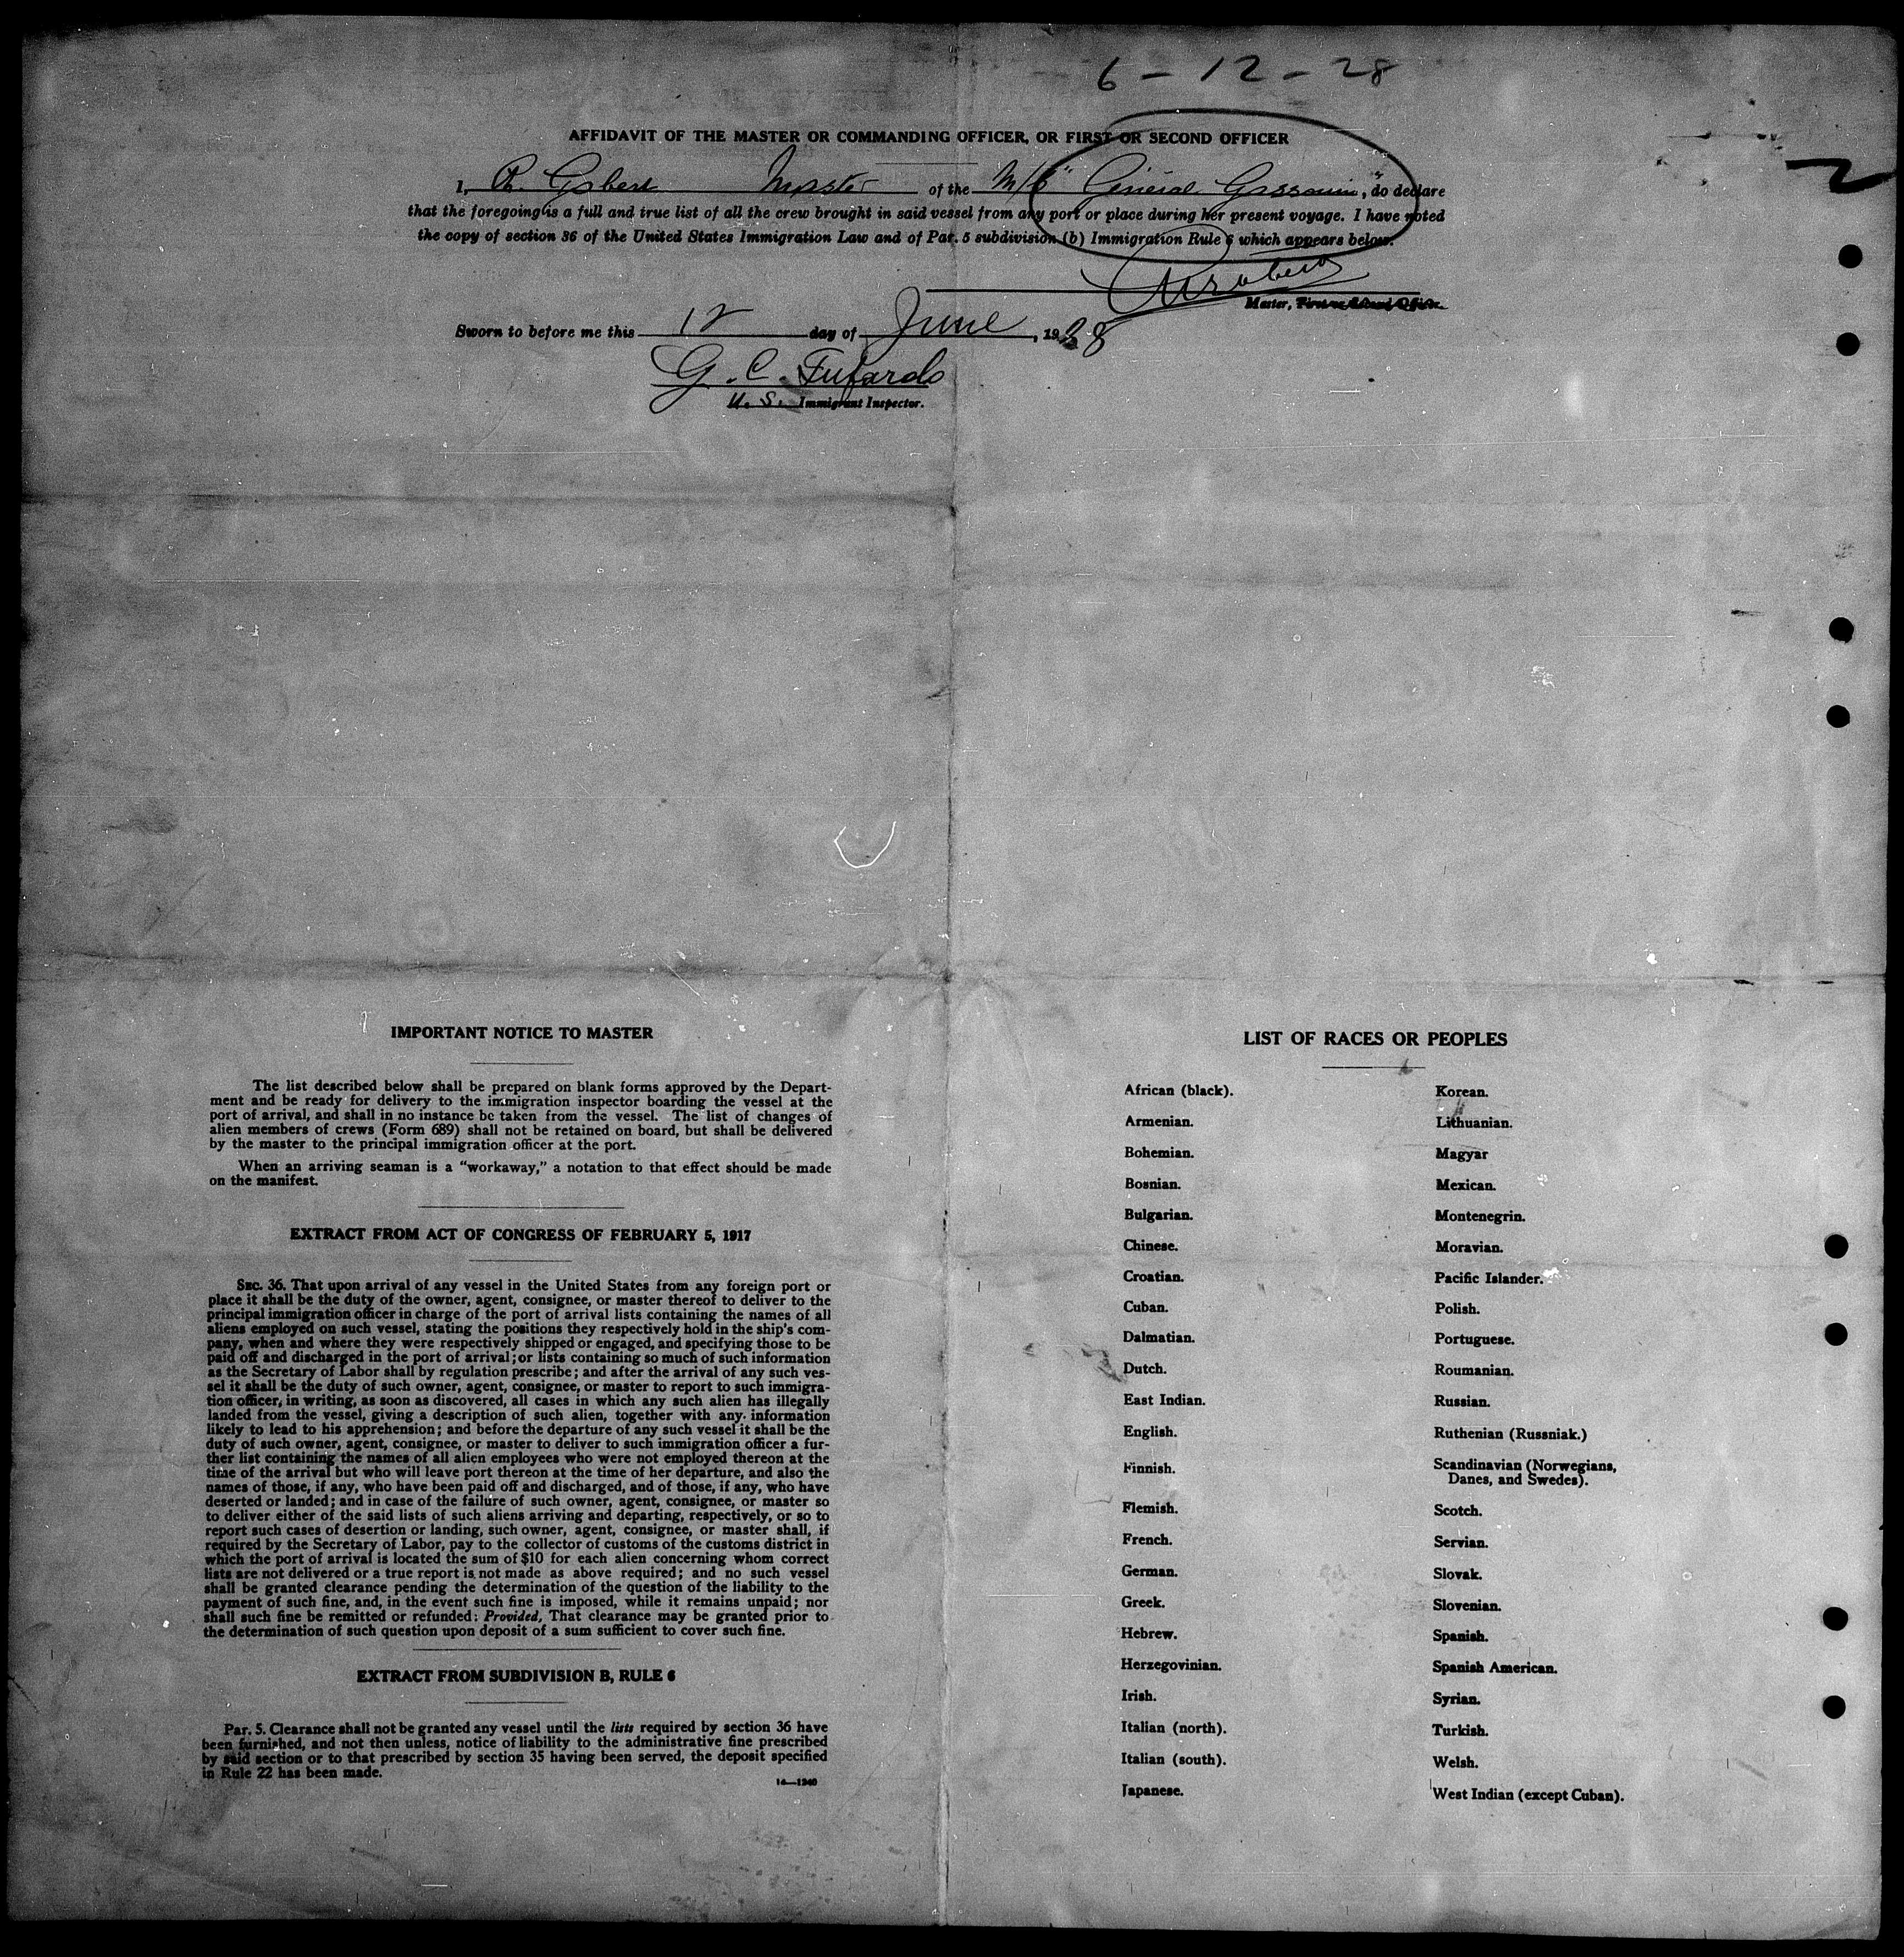 6-12-28
AFFIDAVIT OF THE MASTER OR COMMANDING OFFICER, OR FIRST OR SECOND OFFICER
I, R. Master of the M/S "General Gassouin", do declare
that the foregoing is a full and true list of all the crew brought in said vessel from any port or place during her present voyage. I have noted
the copy of section 36 of the United States Immigration Law and of Par. 5 subdivision (b) Immigration Rule 6 which appears below.
Master, First or Second Officer.
Sworn to before me this 12 day of June, 1928
G. C. Furtardo
U. S. Immigrant Inspector.
2
IMPORTANT NOTICE TO MASTER
The list described below shall be prepared on blank forms approved by the Depart-
ment and be ready for delivery to the immigration inspector boarding the vessel at the
port of arrival, and shall in no instance be taken from the vessel. The list of changes of
alien members of crews (Form 689) shall not be retained on board, but shall be delivered
by the master to the principal immigration officer at the port.
When an arriving seaman is a "workaway," a notation to that effect should be made
on the manifest.
EXTRACT FROM ACT OF CONGRESS OF FEBRUARY 5, 1917
SEC. 36. That upon arrival of any vessel in the United States from any foreign port or
place it shall be the duty of the owner, agent, consignee, or master thereof to deliver to the
principal immigration officer in charge of the port of arrival lists containing the names of all
aliens employed on such vessel, stating the positions they respectively hold in the ship's com-
pany, when and where they were respectively shipped or engaged, and specifying those to be
paid off and discharged in the port of arrival; or lists containing so much of such information
as the Secretary of Labor shall by regulation prescribe; and after the arrival of any such ves-
sel it shall be the duty of such owner, agent, consignee, or master to report to such immigra-
tion officer, in writing, as soon as discovered, all cases in which any such alien has illegally
landed from the vessel, giving a description of such alien, together with any information
likely to lead to his apprehension; and before the departure of any such vessel it shall be the
duty of such owner, agent, consignee, or master to deliver to such immigration officer a fur-
ther list containing the names of all alien employees who were not employed thereon at the
time of the arrival but who will leave port thereon at the time of her departure, and also the
names of those, if any, who have been paid off and discharged, and of those, if any, who have
deserted or landed; and in case of the failure of such owner, agent, consignee, or master so
to deliver either of the said lists of such aliens arriving and departing, respectively, or so to
report such cases of desertion or landing, such owner, agent, consignee, or master shall, if
required by the Secretary of Labor, pay to the collector of customs of the customs district in
which the port of arrival is located the sum of $10 for each alien concerning whom correct
lists are not delivered or a true report is not made as above required; and no such vessel
shall be granted clearance pending the determination of the question of the liability to the
payment of such fine, and, in the event such fine is imposed, while it remains unpaid; nor
shall such fine be remitted or refunded: Provided, That clearance may be granted prior to
the determination of such question upon deposit of a sum sufficient to cover such fine.
EXTRACT FROM SUBDIVISION B, RULE 6
Par. 5. Clearance shall not be granted any vessel until the lists required by section 36 have
been furnished, and not then unless, notice of liability to the administrative fine prescribed
by said section or to that prescribed by section 35 having been served, the deposit specified
in Rule 22 has been made.
14—1240
LIST OF RACES OR PEOPLES
African (black).
Armenian.
Bohemian.
Bosnian.
Bulgarian.
Chinese.
Croatian.
Cuban.
Dalmatian.
Dutch.
East Indian.
English.
Finnish.
Flemish.
French.
German.
Greek.
Hebrew.
Herzegovinian.
Irish.
Italian (north).
Italian (south).
Japanese.
Korean.
Lithuanian.
Magyar
Mexican.
Montenegrin.
Moravian.
Pacific Islander.
Polish.
Portuguese.
Roumanian.
Russian.
Ruthenian (Russniak.)
Scandinavian (Norwegians,
Danes, and Swedes).
Scotch.
Servian.
Slovak.
Slovenian.
Spanish.
Spanish American.
Syrian.
Turkish.
Welsh.
West Indian (except Cuban).